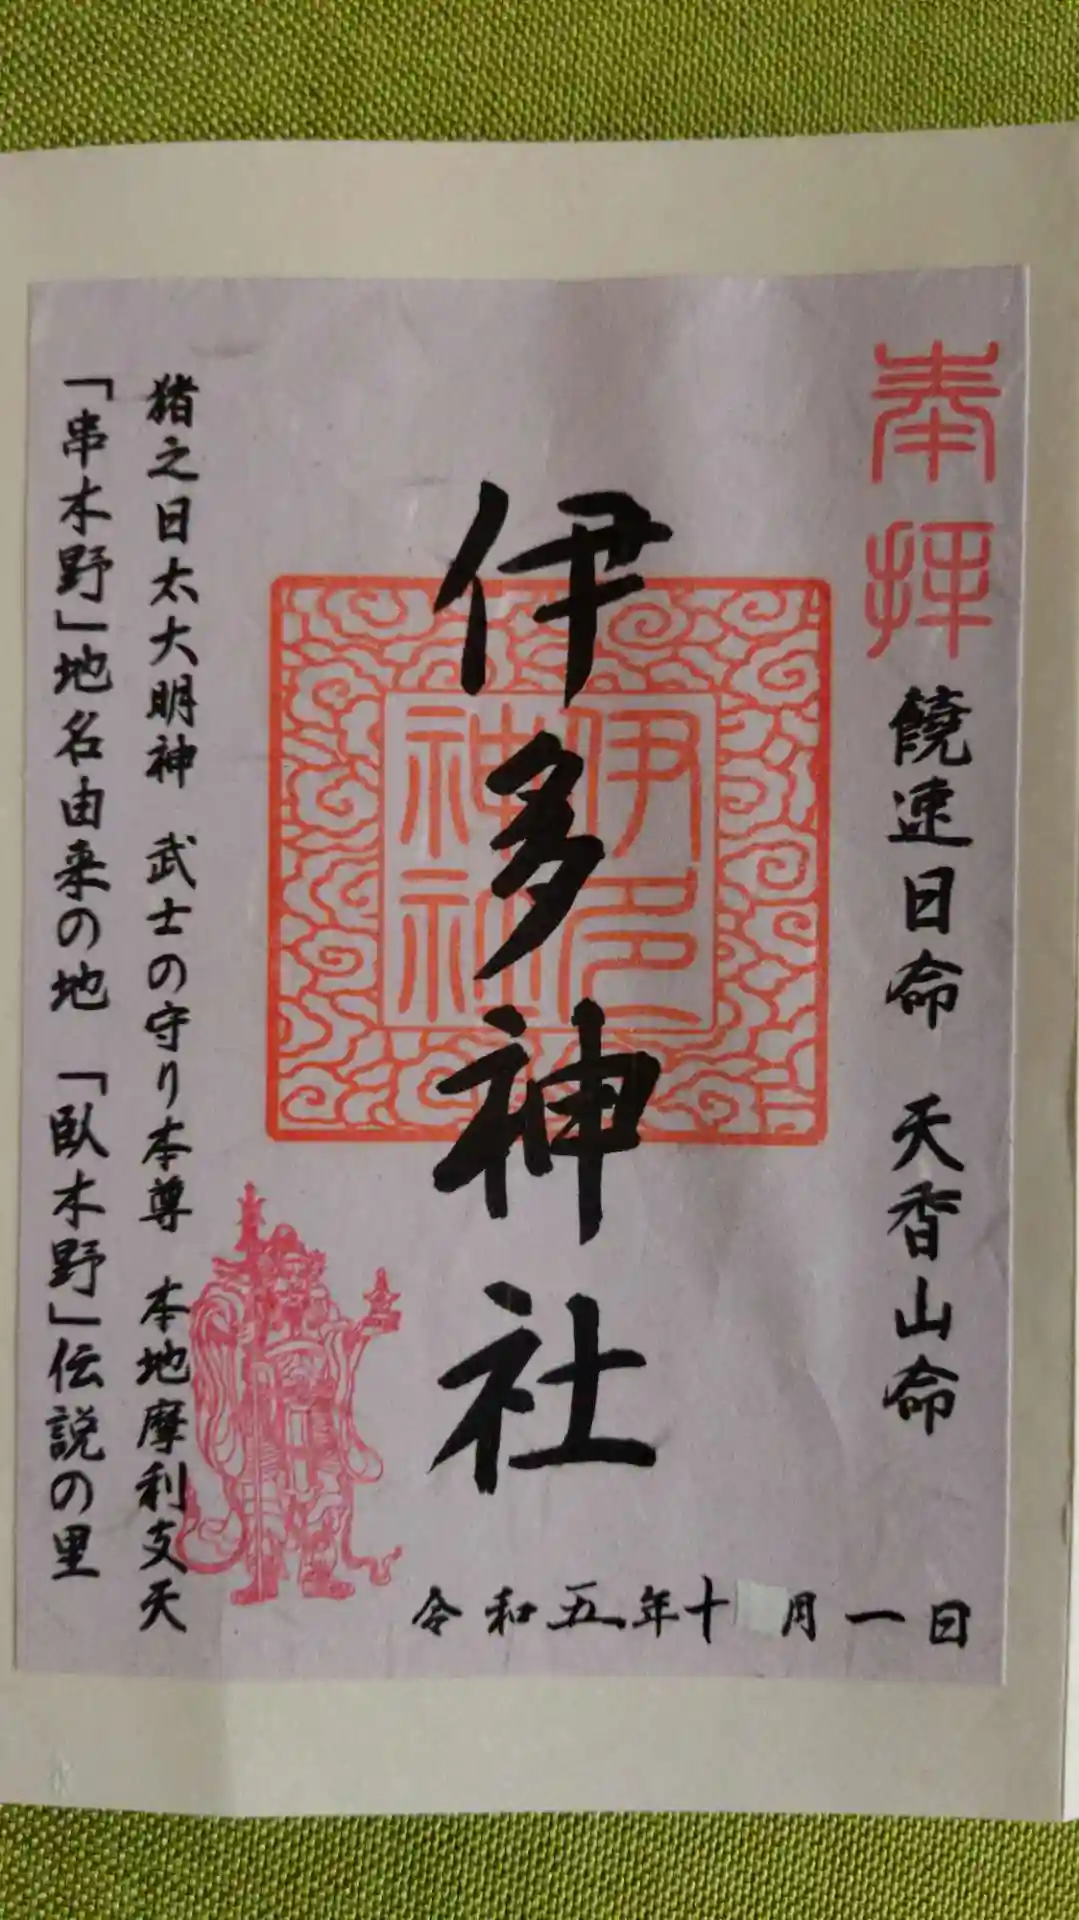 奉拝
饒速日命 天香山命
伊多神社
伊多神社
猪之日太大明神 武士の守り本尊 本地摩利支天
「串木野」地名由来の地 「臥木野」伝説の里
令和五年十 月一日